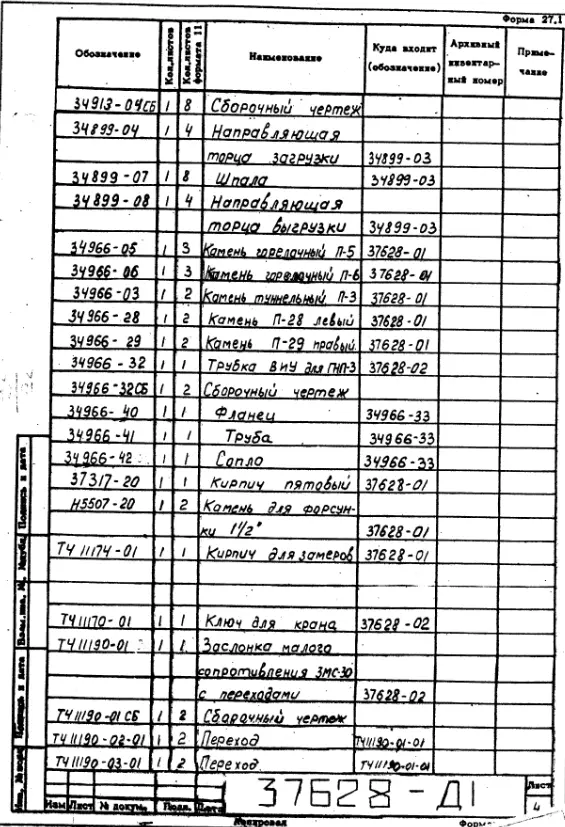 Форма 27.1
Обозначение Кол.листов Кол.листов формата 11 Наименование Куда входит (обозначение) Архивный инвентарный номер Примечание
34913-04СБ 1 8 Сборочный чертеж
34899-04 1 4 Направляющая
торца загрузки 34899-03
34899-07 1 8 Шпала 34899-03
34899-08 1 4 Направляющая
торца выгрузки 34899-03
34966-05 1 3 Камень горелочный П-5 37628-01
34966-06 1 3 Камень горелочный П-6 37628-01
34966-03 1 2 Камень туннельный П-3 37628-01
34966-28 1 2 Камень П-28 левый 37628-01
34966-29 1 2 Камень П-29 правый 37628-01
34966-32 1 1 Трубка ВиУ для ГНП-3 37628-02
34966-32СБ 1 2 Сборочный чертеж
34966-40 1 1 Фланец 34966-33
34966-41 1 1 Труба 34966-33
34966-42 1 1 Сопло 34966-33
37317-20 1 1 Кирпич пятовый 37628-01
Н5507-20 1 2 Камень для форсун-
ки 1½" 37628-01
ТЧ 11174-01 1 1 Кирпич для замеров 37628-01
ТЧ11170-01 1 1 Ключ для крана 37628-02
ТЧ11190-01 1 1 Заслонка малого
сопротивления ЗМС-30
с переходами 37628-02
ТЧ11190-01СБ 1 2 Сборочный чертеж
ТЧ11190-02-01 1 2 Переход ТЧ11190-01-01
ТЧ11190-03-01 1 2 Переход ТЧ11190-01-01
Подпись и дата
Взам.инв. №
Инв.№дубл.
Подпись и дата
Изм Лист № докум. Подп. Дата
37628-Д1
Лист
4
Копировал
Форма